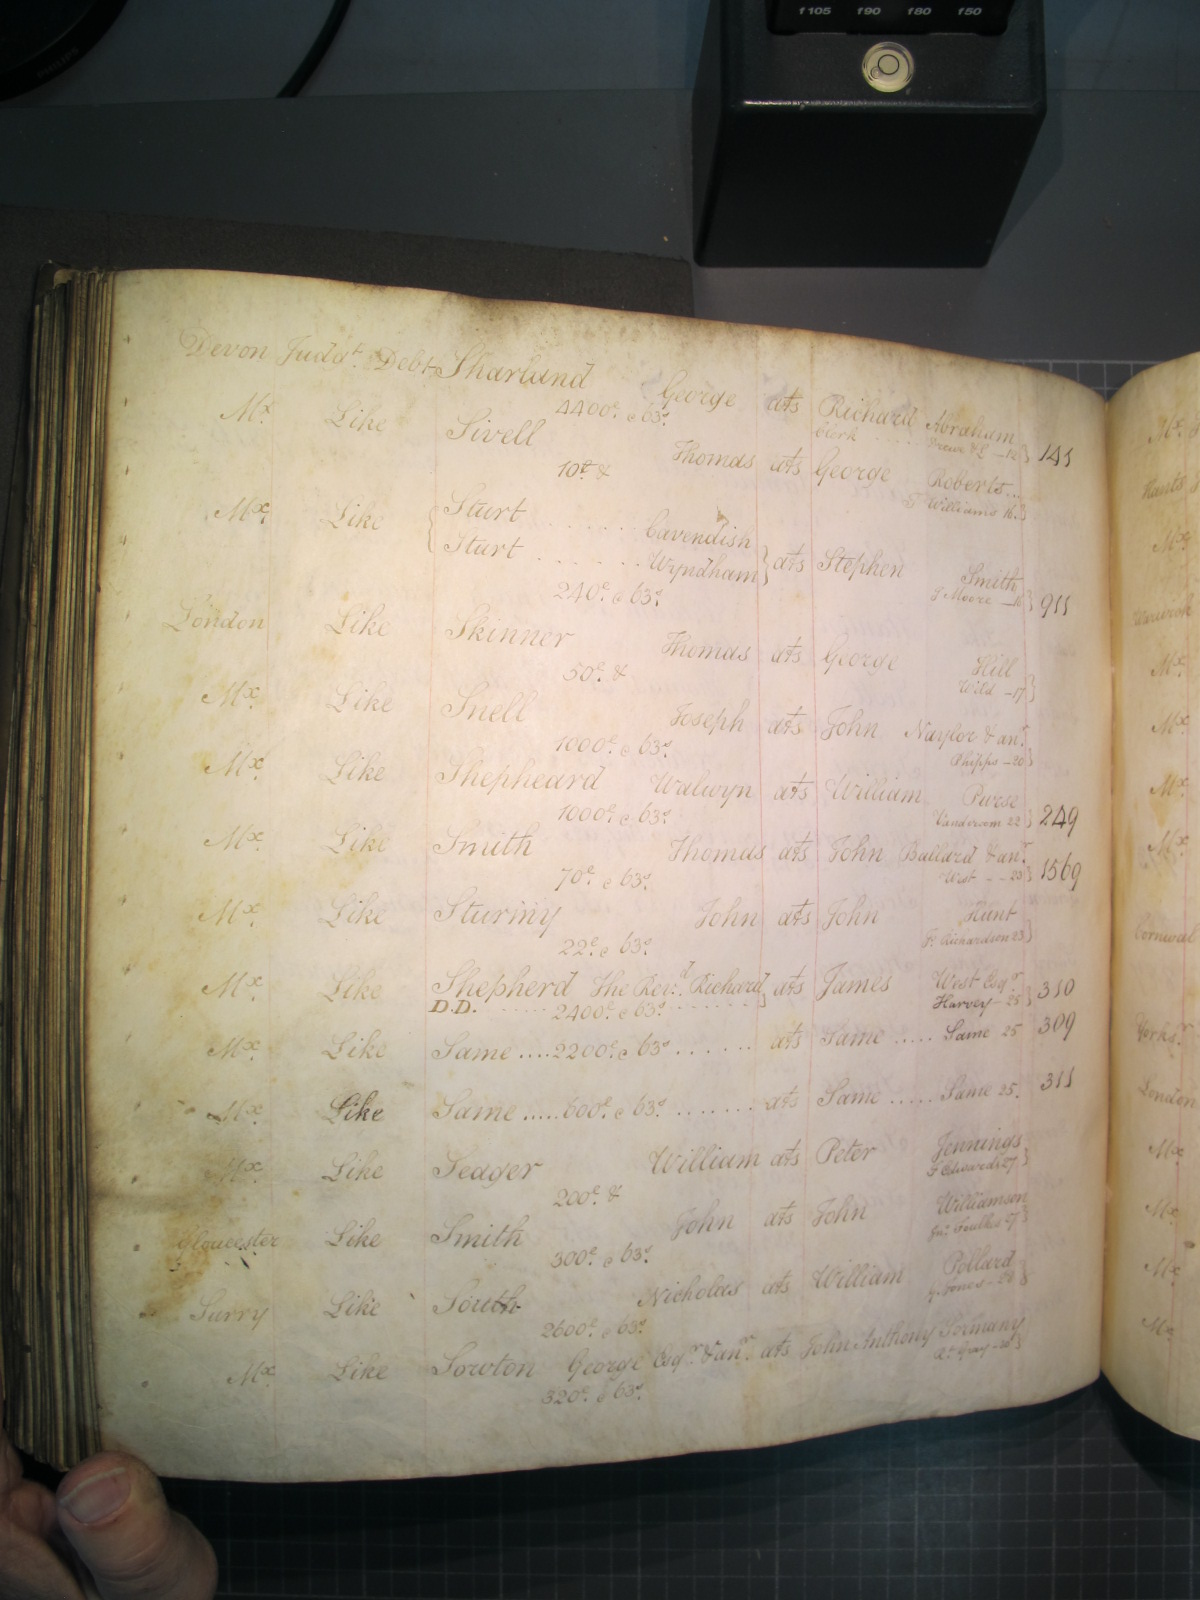 f105 f90 f80 f50
PHILIPS
Devon Judgt. Debt Sharland George ats Richard Abraham
4400£ & 63s Clerk 12} 141
Mx Like Sivell Thomas ats George Roberts...
10£ & Williams 16.}
Mx. Like { Sturt ...... Cavendish
Sturt ...... Wyndham } ats Stephen Smith
240£ & 63s. J Moore _16} 911
London Like Skinner Thomas ats George Hill
50£ & Wild _17}
Mx. Like Snell Joseph ats John Naylor & anr.
1000£ & 63s. Phipps _20}
Mx. Like Shepheard Walwyn ats William Purse
1000£ & 63s. Vandercom 22} 249
Mx. Like Smith Thomas ats John Ballard & anr.
70£ & 63s. West _ _ 23} 1569
Mx. Like Sturmy John ats John Hunt
22£ & 63s. Richardson 23}
Mx. Like Shepherd The Revd. Richard } ats James West Esqr.
D.D. ..... 2400£ & 63s ....... Harvey _ 25} 310
Mx. Like Same ....2200£ & 63s ...... ats Same ..... Same 25 309
Mx. Like Same .....600£ & 63s. ........ ats Same ..... Same 25. 311
Mx. Like Seager William ats Peter Jennings
200£ & Edwards 27}
Gloucester Like Smith John ats John Williamson
300£ & 63s. Jn. 27}
Surry Like South Nicholas ats William Pollard
2600£ & 63s. Jones _ 28}
Mx. Like Sowton George Esqr. & anr. ats John Anthony
320£ & 63s. Gray _ 28}
Mx
Hants
Mx
Warwick
Mx.
Mx
Mx.
Mx.
Cornwall
Yorksr.
London
Mx
Mx.
Mx
Mx